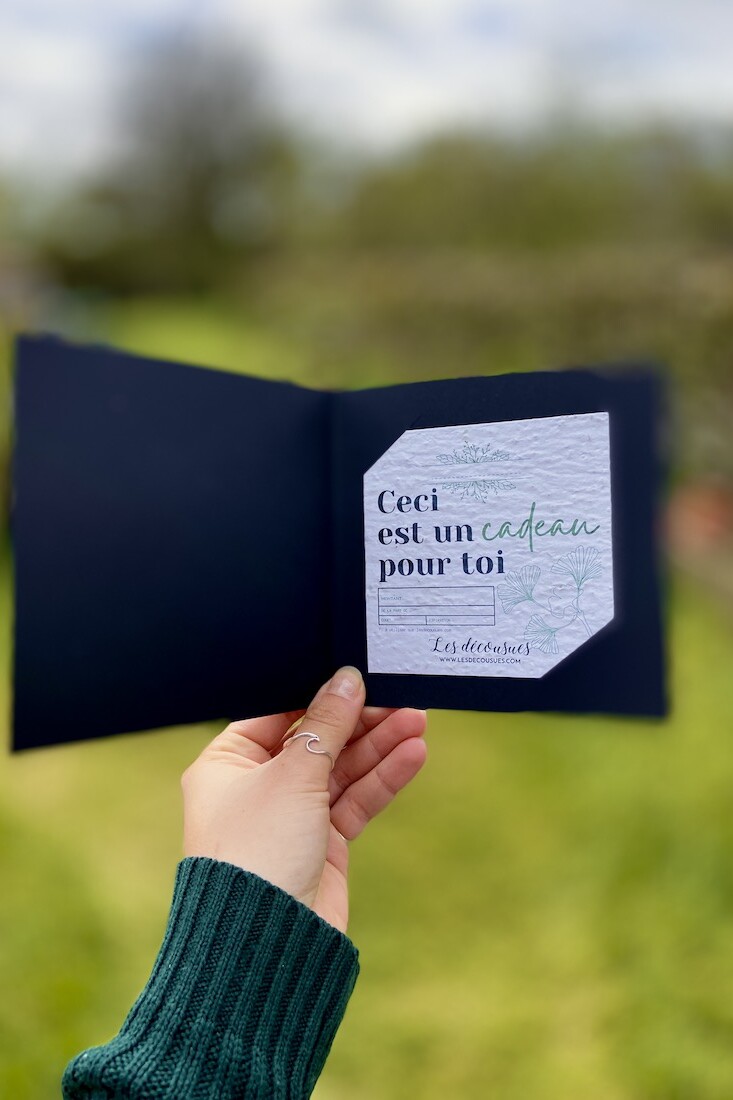 Ceci
est un cadeau
pour toi
Les décousues
WWW.LESDECOUSUES.COM